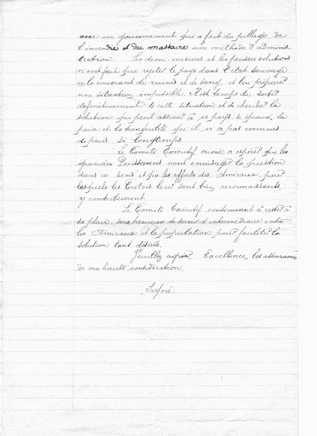 avec un gouvernement qui a fait du pillage, de
l'incendie et du massacre une méthode d'adminis
tration. Les demi mesures et les fausses solutions
n'ont fait que rejeter le pays dans l'état sauvage
en le couvrant de ruines et de sang, et lui préparer
une situation impossible. Il est temps de sortir
définitivement de cette situation et de chercher la
solution qui peut assurer à ce pays le
paix et la tranquillité qu'il n'a pas connues
depuis si longtemps.
Le Comité Exécutif aime à espérer que les
grandes Puissances vont envisager la question
dans ce sens et que les efforts des Amiraux, pour
lesquels les Crétois leur sont très reconnaissants
y contribueront.
Le Comité Exécutif continuant à rester à
sa place, sera heureux de servir d'intermédiaire entre
les Amiraux et la population pour faciliter la
solution tant désirée.
Veuillez agréer, Excellence, les assurances
de ma haute considération
Signé: